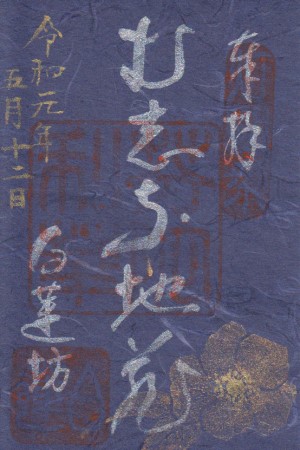 奉拝
む志な地蔵
白蓮坊
令和元年
五月十二日